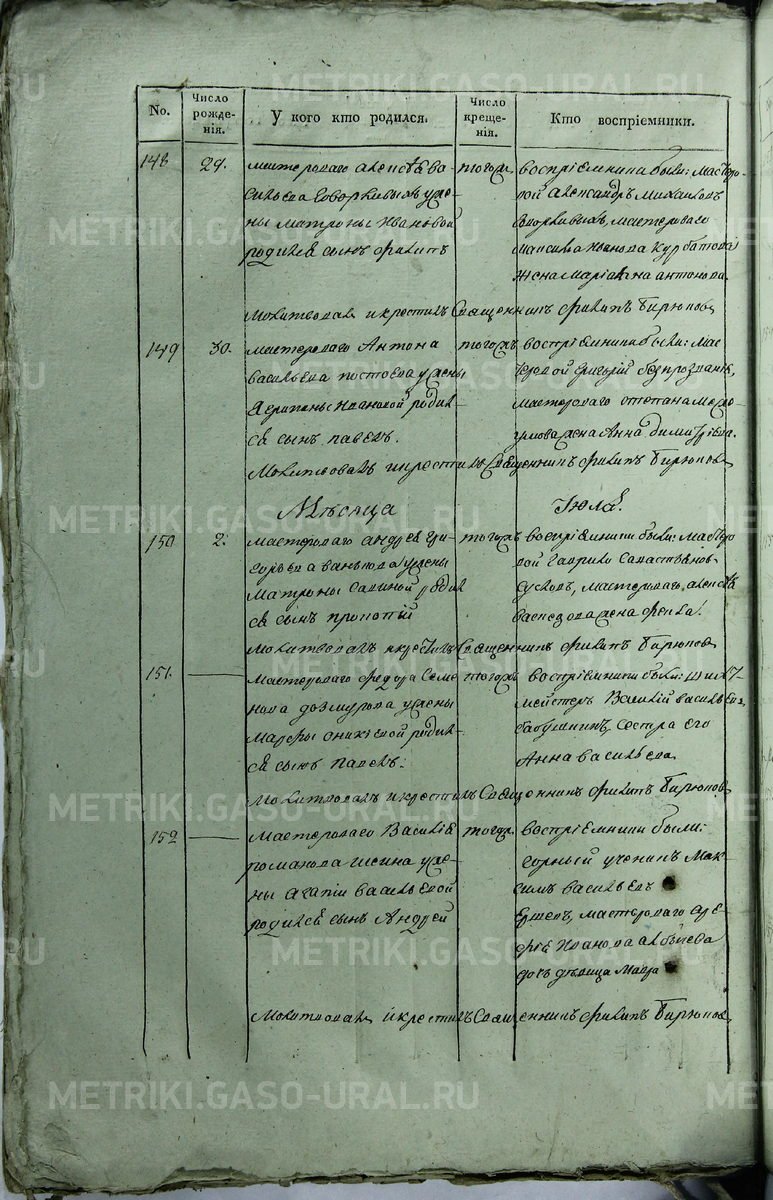 METRIKI.GASO-URAL.RU
No.
Число рожде-
нія.
У кого кто родился.
Число креще-
нія.
Кто воспріемники.
148
29.
мастероваго Алексѣя Ва-
сильева
у же-
ны Матроны Ивановой
родился сынъ Филипъ
тогожъ
воспріемники были: масте-
ровой Александръ Михайловъ
мастероваго
Максима Иванова Курбатова
жена Марiанна Антонова
Молитвовалъ и крестилъ Священникъ Филипъ Бирюковъ
149
30.
мастероваго Антона
Васильева Постоева у жены
Ивановой родил-
ся сынъ Павелъ.
тогожъ
воспріемники были: мас-
теровой Григорій
мастероваго Степана
жена Анна Димитріева.
Молитвовалъ и крестилъ Священникъ Филипъ Бирюковъ
Мѣсяца Іюля.
150
2.
мастероваго Андрея Гри-
горьева Ванькова у жены
Матроны Савиной родил
ся сынъ Прокопій
тогожъ
воспріемники были: масте-
вой Гаврило
Сусловъ, мастероваго Алексѣя
жена Фекла.
Молитвовалъ и крестилъ Священникъ Филипъ Бирюковъ
151.
мастероваго Федора Семе
нова Дозмурова у жены
Марфы Оникіевой родил-
ся сынъ Павелъ:
тогожъ
воспріемники были: шихт-
мейстеръ Василій Васильевъ
Бабушкинъ, сестра его
Анна Васильева
Молитвовалъ и крестилъ Священникъ Филипъ Бирюковъ
152
Мастероваго Василія
Романова у же-
ны Агапіи Васильевой
родился сынъ Андрей
тогожъ
воспріемники были:
горный ученикъ Мак-
симъ Васильевъ
Ершовъ, мастероваго Сер-
гѣя Иванова
дочь дѣвица Мавра
Молитвовалъ и крестилъ Священникъ Филипъ Бирюковъ